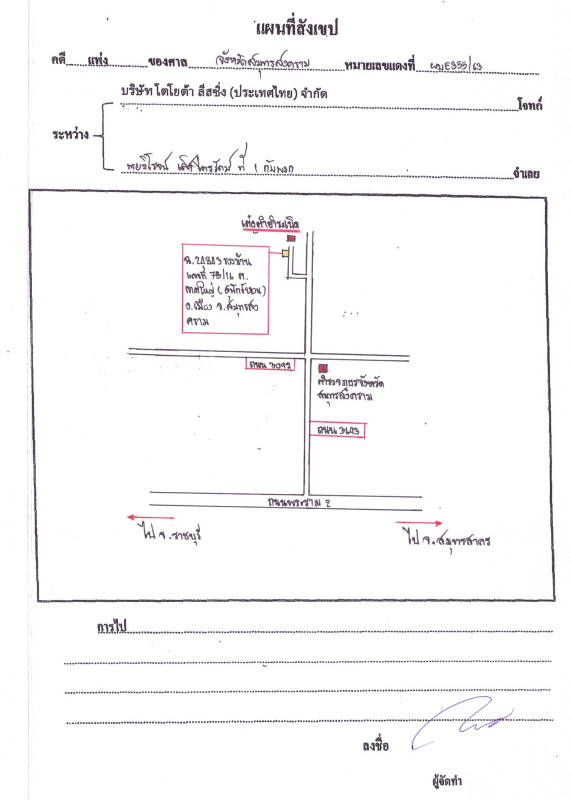 แผนที่สังเขป
คดี แพ่ง ของศาล จังหวัดสมุทรสงคราม หมายเลขแดงที่ ผบE355/63
บริษัท โตโยต้า ลีสซิ่ง (ประเทศไทย) จำกัด
โจทก์
ระหว่าง
ที่ 1 กับพวก
จำเลย
ฉ.21813
เลขที่ 79/16 ต.
อ.เมือง จ.สมุทรสง
คราม
ถนน 3092
ตำรวจภูธรจังหวัด
สมุทรสงคราม
ถนน
ถนนพระราม 2
ไป จ.ราชบุรี
ไป จ.สมุทรสาคร
การไป
ลงชื่อ
ผู้จัดทำ